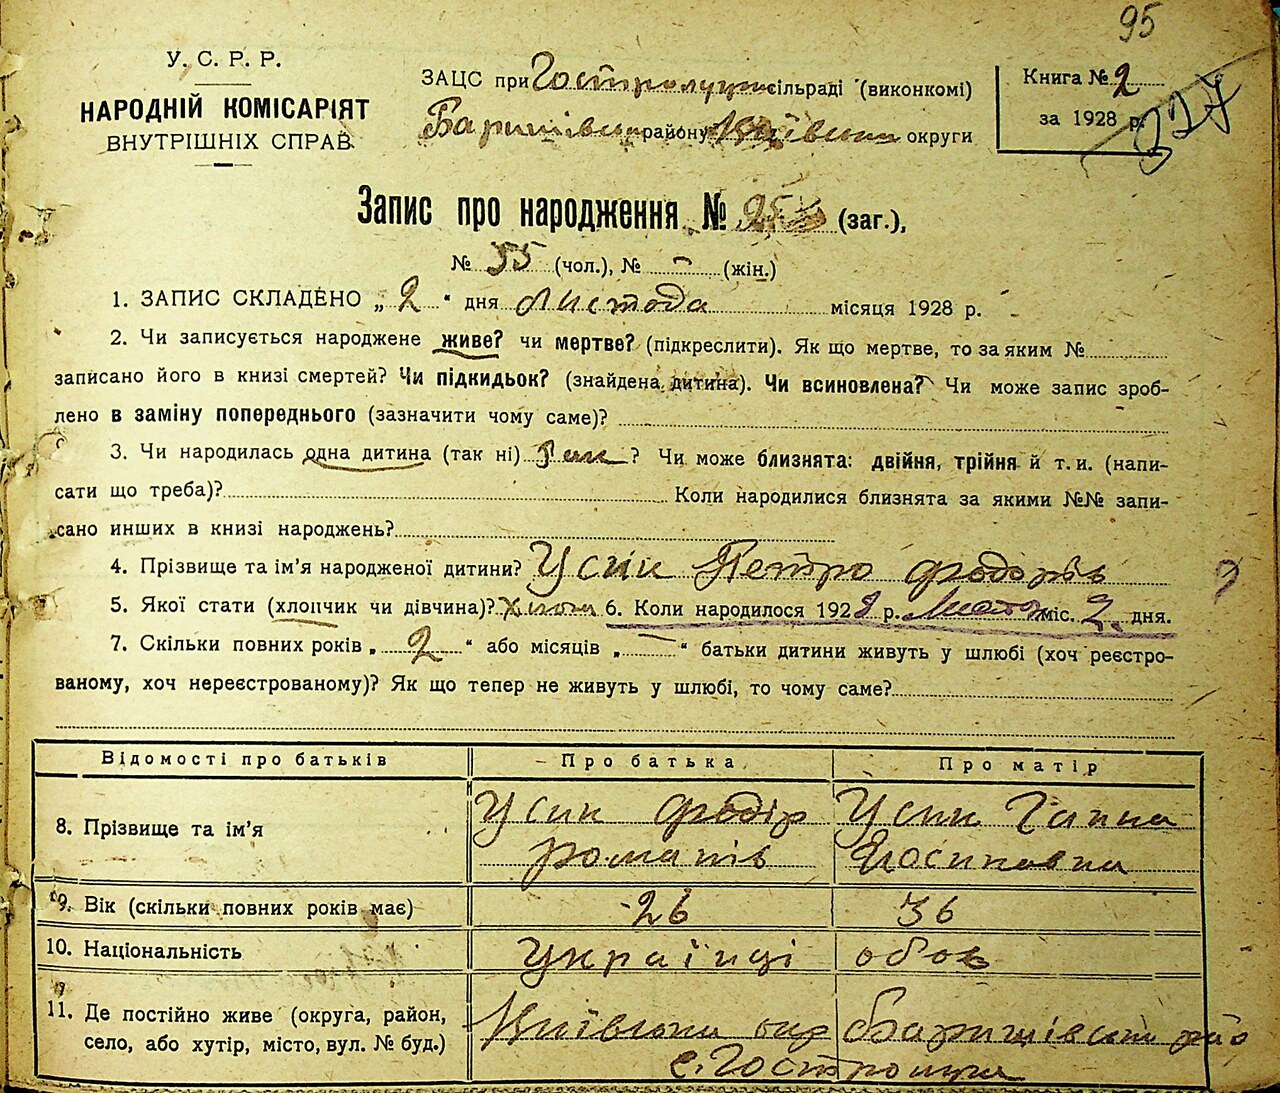 95
У. С. Р. Р.
НАРОДНІЙ КОМІСАРІЯТ
ВНУТРІШНІХ СПРАВ
ЗАЦС при Гостролуцьк сільраді (виконкомі)
Баришівськ району Київськ округи
Книга № 2
за 1928 р.
327
Запис про народження № 95 (заг.),
№ 55 (чол.), № - (жін.)
1. ЗАПИС СКЛАДЕНО „ 2 " дня Листода місяця 1928 р.
2. Чи записується народжене живе? чи мертве? (підкреслити). Як що мертве, то за яким №
записано його в книзі смертей? Чи підкидьок? (знайдена дитина). Чи всиновлена? Чи може запис зроб-
лено в заміну попереднього (зазначити чому саме)?
3. Чи народилась одна дитина (так ні) Так ? Чи може близнята: двійня, трійня й т. и. (напи-
сати що треба)? Коли народилися близнята за якими №№ запи-
сано инших в книзі народжень?
4. Прізвище та ім'я народженої дитини? Усик Петро Федорів
5. Якої стати (хлопчик чи дівчина)? Хлопч 6. Коли народилося 1928 р. міс. 2 дня.
7. Скільки повних років „ 2 " або місяців „ — " батьки дитини живуть у шлюбі (хоч реєстро-
ваному, хоч нереєстрованому)? Як що тепер не живуть у шлюбі, то чому саме?
Відомості про батьків Про батька Про матір
8. Прізвище та ім'я Усик Федір Романів Усик Ганна Йосиповна
9. Вік (скільки повних років має) 26 36
10. Національність Українці обоє
11. Де постійно живе (округа, район, село, або хутір, місто, вул. № буд.) Київська окр Баришівськи рай
с. Гостролуча